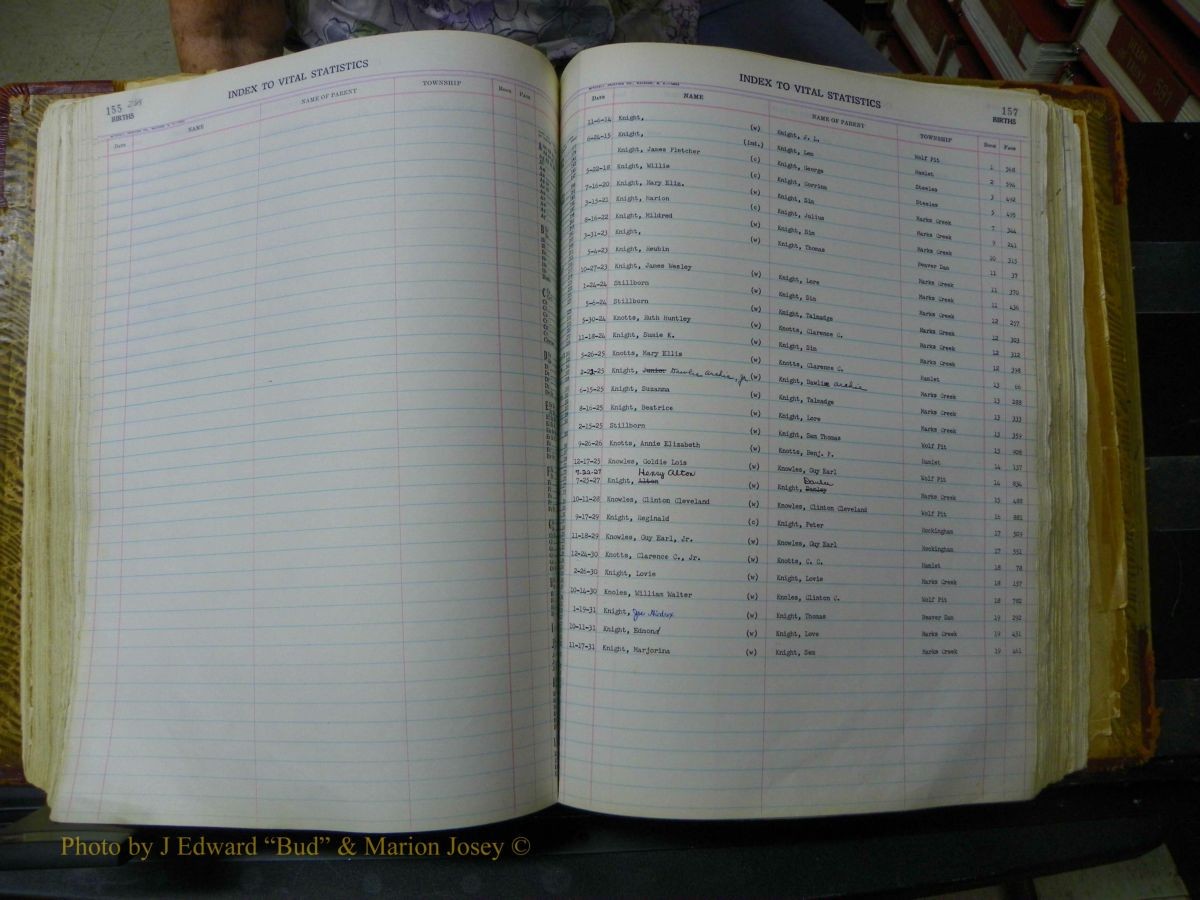 155
BIRTHS
INDEX TO VITAL STATISTICS
Date NAME NAME OF PARENT TOWNSHIP Book Page
INDEX TO VITAL STATISTICS
157
BIRTHS
Date NAME NAME OF PARENT TOWNSHIP Book Page
11-6-14 Knight, (w) Knight, J. L. Wolf Pit 1 348
6-24-15 Knight, (Int.) Knight, Lee Hamlet 2 594
Knight, James Fletcher (c) Knight, George Steeles 3 492
5-22-18 Knight, Willis (c) Knight, Corrina Steeles 5 495
7-16-20 Knight, Mary Eliz. (w) Knight, Sim Marks Creek 7 344
3-15-21 Knight, Marion (c) Knight, Julius Marks Creek 9 241
8-16-22 Knight, Mildred (w) Knight, Sim Marks Creek 10 315
3-31-23 Knight, (w) Knight, Thomas Beaver Dam 11 37
5-4-23 Knight, Heubin Marks Creek 11 370
10-27-23 Knight, James Wesley (w) Knight, Love Marks Creek 11 436
1-24-24 Stillborn (w) Knight, Sim Marks Creek 12 257
5-6-24 Stillborn (w) Knight, Talmadge Marks Creek 12 303
5-30-24 Knotts, Ruth Huntley (w) Knotts, Clarence C. Marks Creek 12 312
11-18-24 Knight, Susie K. (w) Knight, Sim Marks Creek 12 398
5-26-25 Knotts, Mary Ellis (w) Knotts, Clarence C. Hamlet 13 66
2-21-25 Knight, Junior Dawlie Archie, Jr. (w) Knight, Dawlie Archie Marks Creek 13 288
6-15-25 Knight, Suzanna (w) Knight, Talmadge Marks Creek 13 333
8-16-25 Knight, Beatrice (w) Knight, Love Marks Creek 13 359
2-15-25 Stillborn (w) Knight, Sam Thomas Wolf Pit 13 908
9-26-26 Knotts, Annie Elizabeth (w) Knotts, Benj. F. Hamlet 14 137
12-17-25 Knowles, Goldie Lois (w) Knowles, Guy Earl Wolf Pit 14 834
7-22-27 Henry Alton
7-25-27 Knight, Alton (w) Knight, Danley Marks Creek 15 488
10-11-28 Knowles, Clinton Cleveland (w) Knowles, Clinton Cleveland Wolf Pit 16 881
9-17-29 Knight, Reginald (c) Knight, Peter Rockingham 17 503
11-18-29 Knowles, Guy Earl, Jr. (w) Knowles, Guy Earl Rockingham 17 551
12-24-30 Knotts, Clarence C., Jr. (w) Knotts, C. C. Hamlet 18 78
2-26-30 Knight, Lovie (w) Knight, Lovie Marks Creek 18 157
10-14-30 Knoles, William Walter (w) Knoles, Clinton C. Wolf Pit 18 782
1-19-31 Knight, Joe Hindrix (w) Knight, Thomas Beaver Dam 19 292
10-11-31 Knight, Edmond (w) Knight, Love Marks Creek 19 431
11-17-31 Knight, Marjorina (w) Knight, Sam Marks Creek 19 461
Photo by J Edward “Bud” & Marion Josey ©